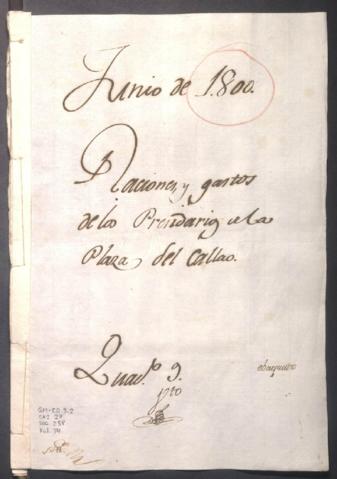 Junio de 1800.
Raciones, y gastos
de los Presidarios de la
Plaza del Callao.
Quad.º 9.
GM-CO 3.2
CAJ 27
DOC 254